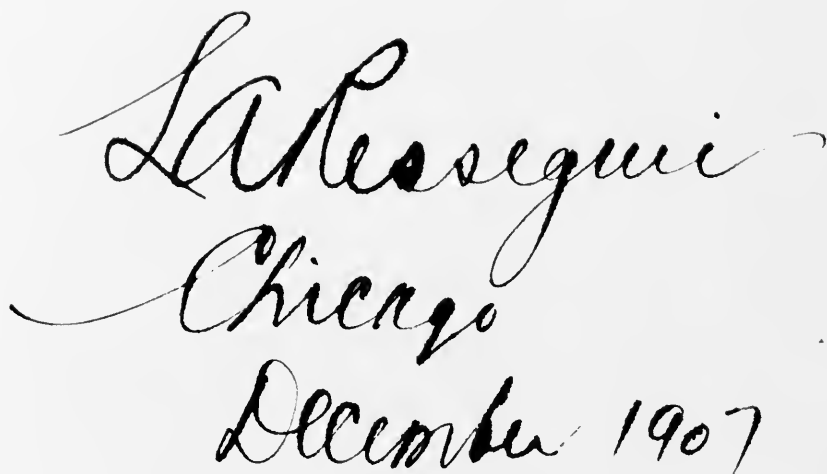 L A Ressegui
Chicago
December 1907